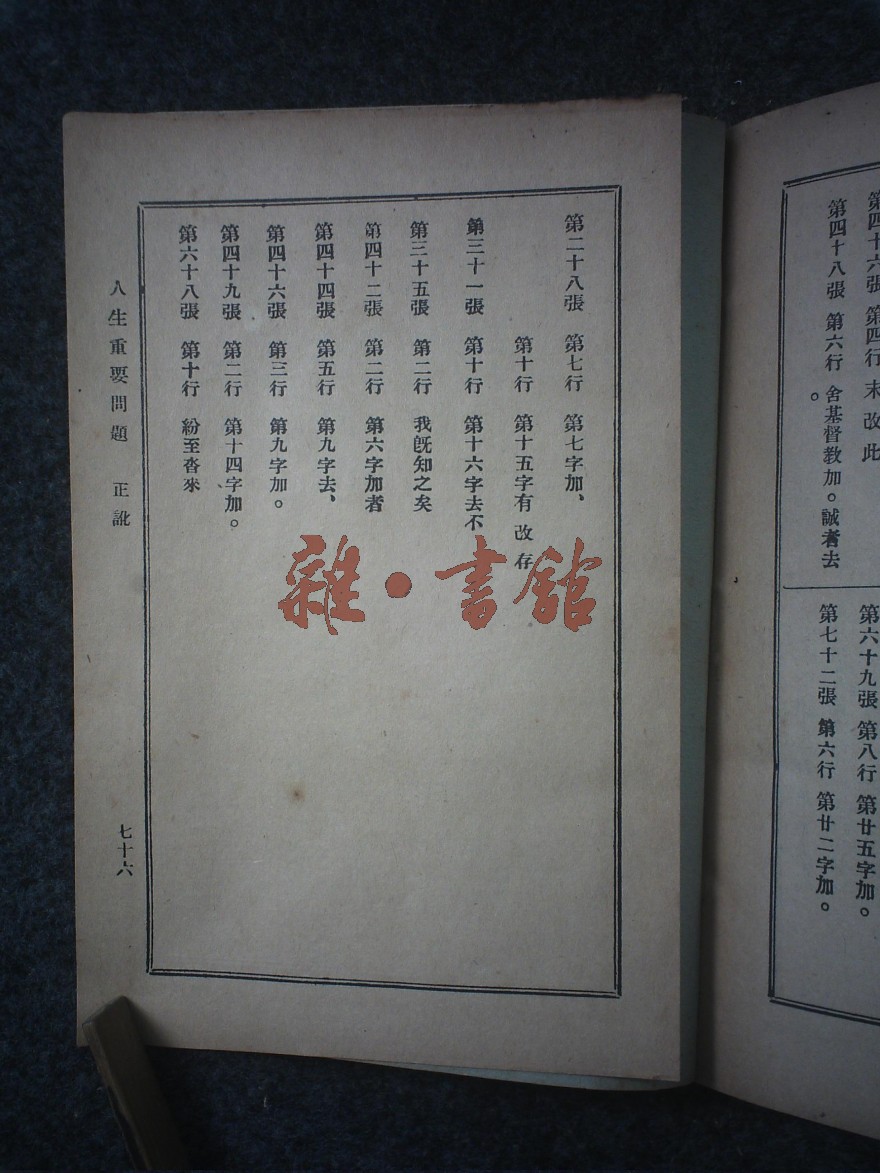 第四十六張　第四行　末　改　此
第四十八張　第六行　舍基督教加。誠者去。
第六十九張　第八行　第廿五字加。
第七十二張　第六行　第廿二字加。
第二十八張　第七行　第七字加、
第十行　第十五字有　改　存
第三十一張　第十行　第十六字去不
第三十五張　第二行　我旣知之矣
第四十二張　第二行　第六字加者
第四十四張　第五行　第九字去、
第四十六張　第三行　第九字加。
第四十九張　第二行　第十四字加。
第六十八張　第十行　紛至沓來
人生重要問題　正訛
七十六
雜·書館